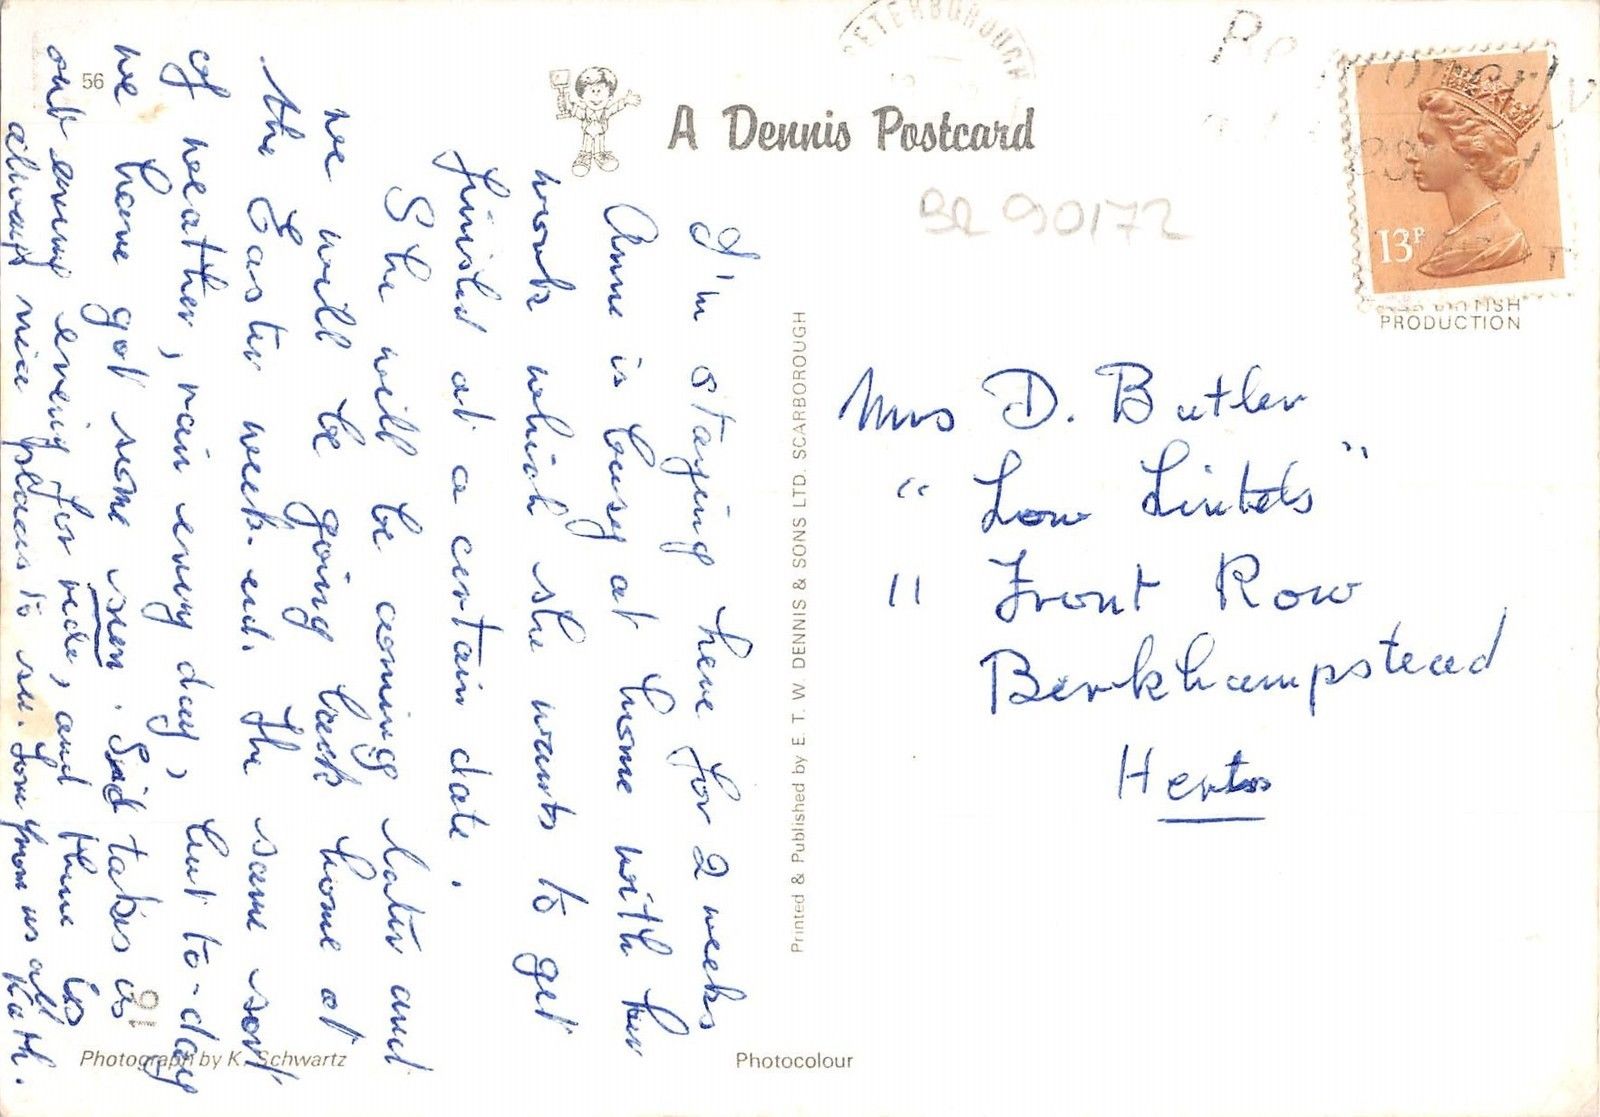 56
A Dennis Postcard
PETERBOROUGH
BR 90172
13P
BRITISH
PRODUCTION
I'm staying here for 2 weeks
Anne is busy at home with her
work which she wants to get
finished at a certain date.
She will be coming later and
we will be going back home at
the Easter week-end. The same sort
of weather, rain every day, but to-day
we have got some sun. Sid takes us
out every evening for ride, and there is
always nice places to see. Love from us all
Kath.
Mrs D. Butler
" Low Lintels "
11 Front Row
Berkhampstead
Herts
Printed & Published by E. T. W. DENNIS & SONS LTD. SCARBOROUGH
Photograph by K. Schwartz
Photocolour